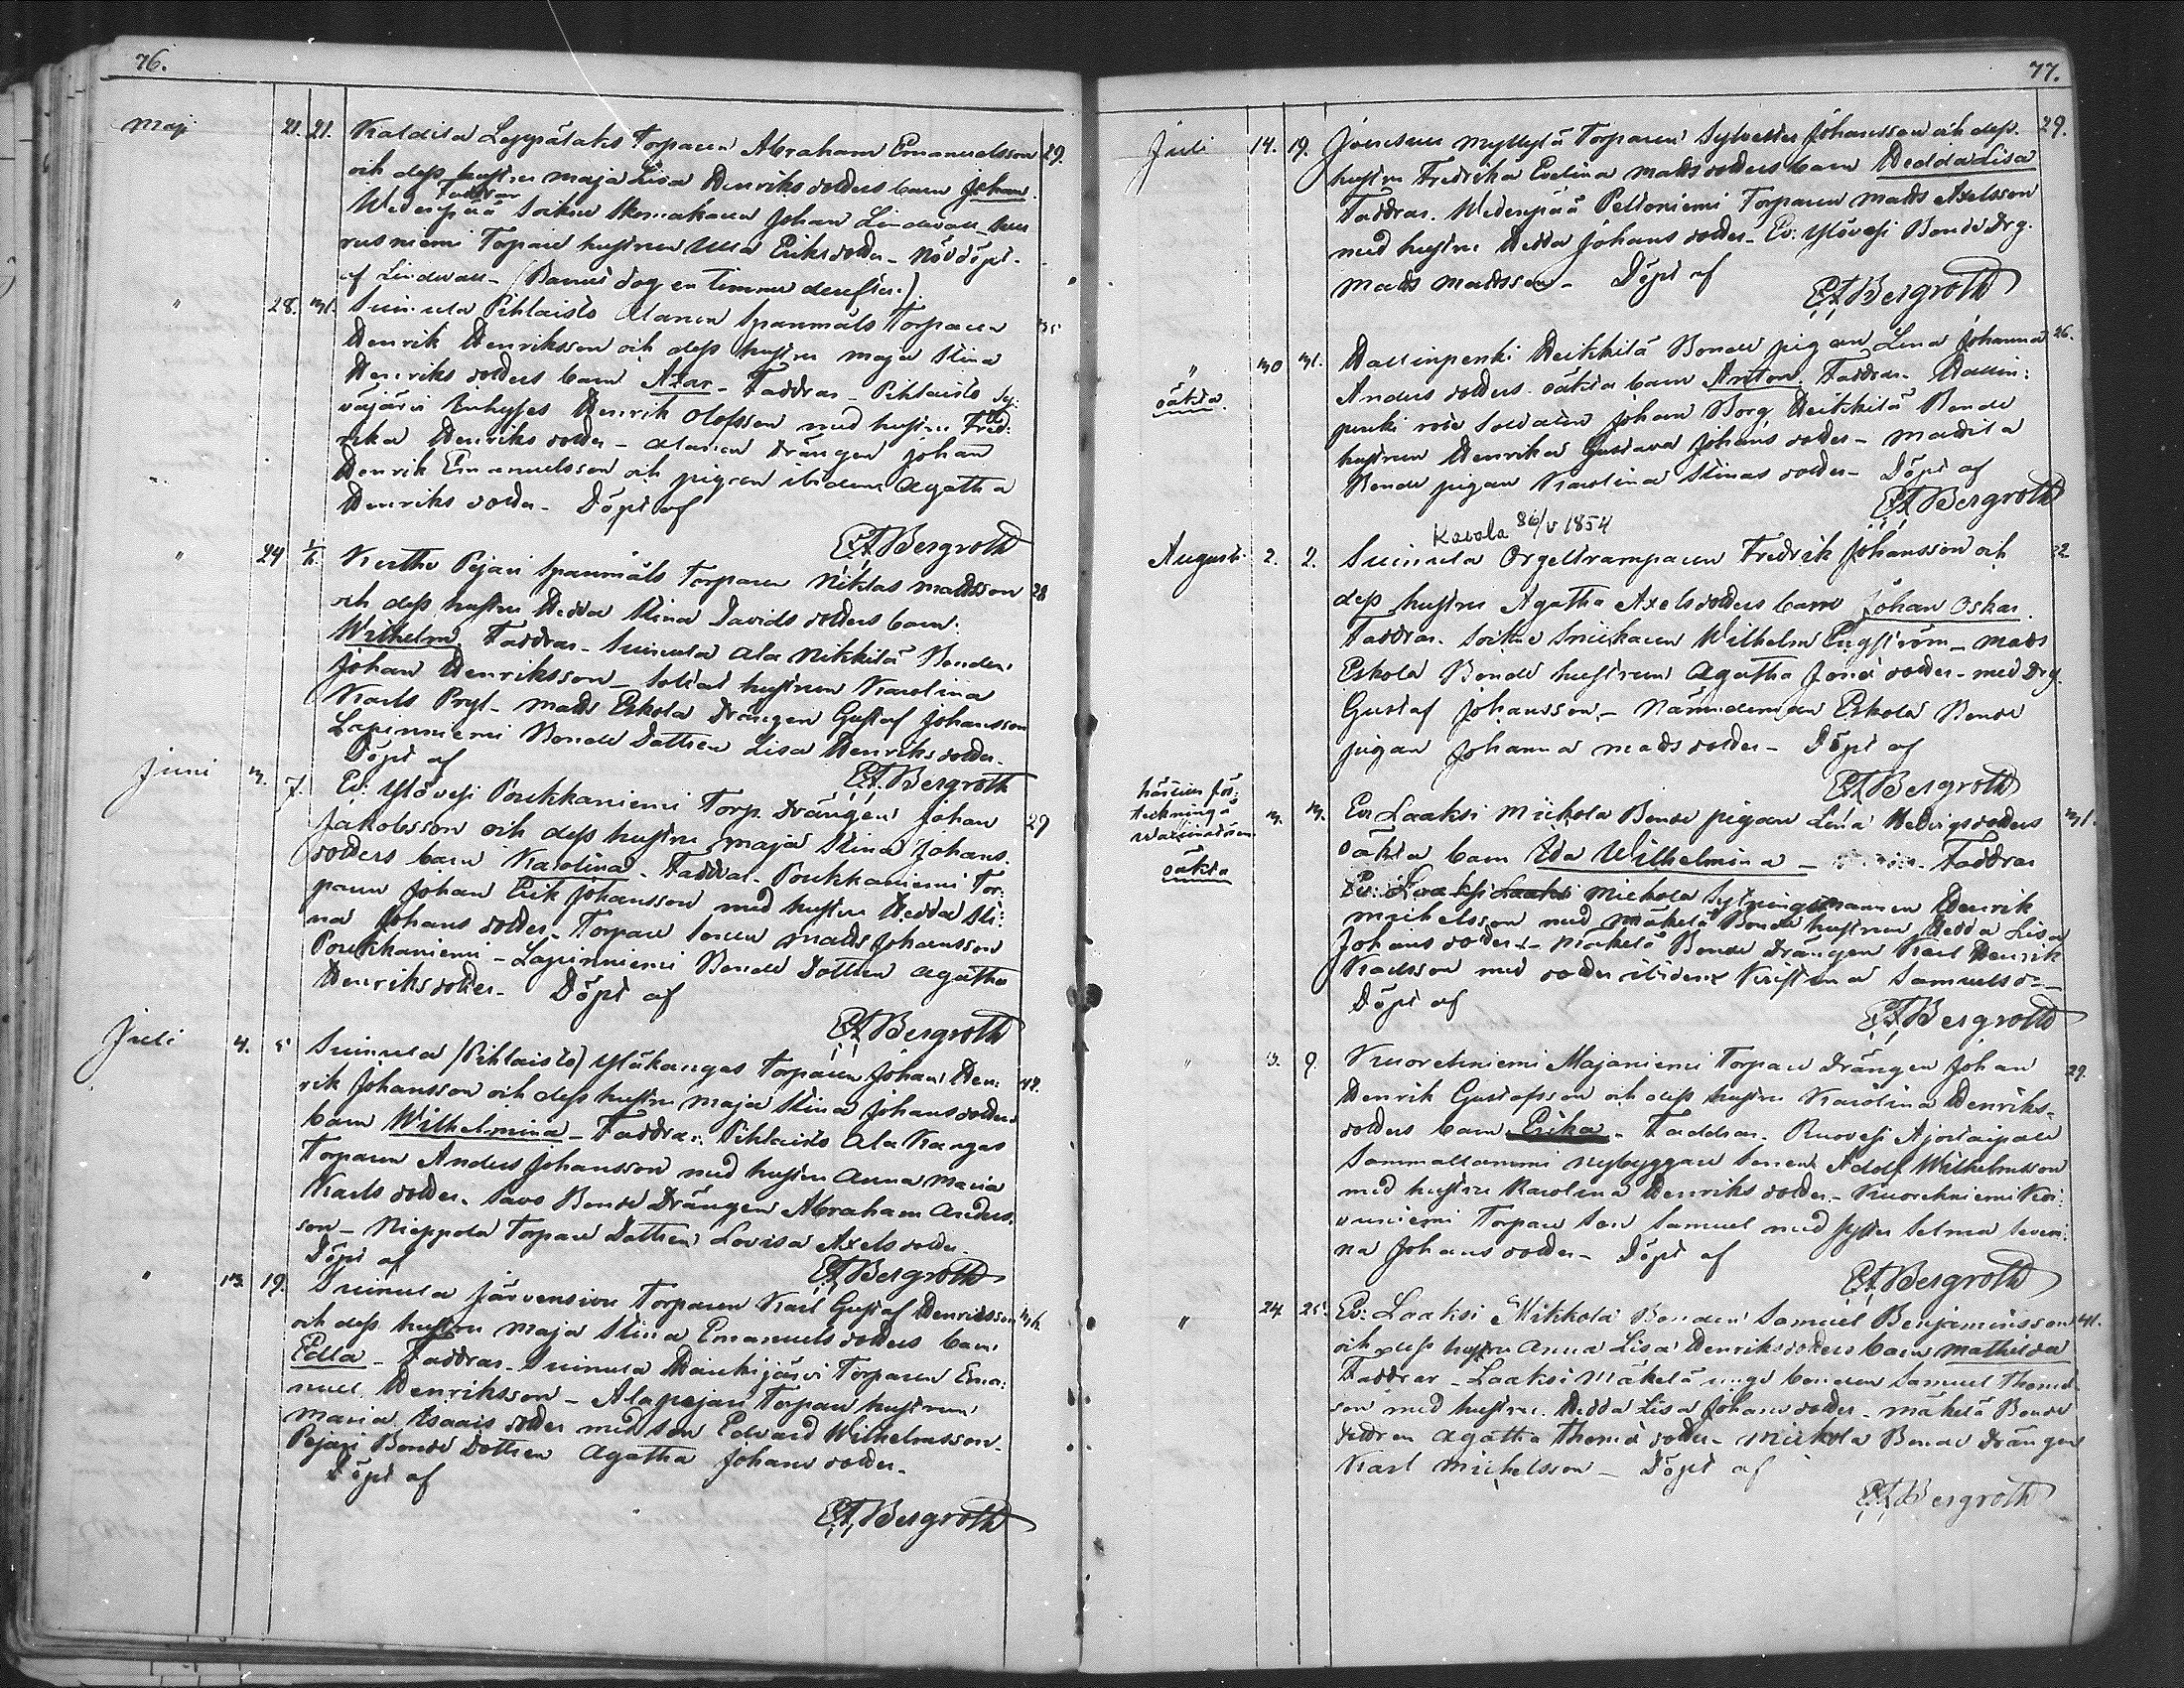 76.
Maji 21. 21. Kaldila Leppälaks Torparen Abraham Emanuelsson 29.
och dess hustru Maja Lisa Henriksdotters barn Johan.
Faddrar
Wedenpää Socken Skomakaren Johan Lindwall
niemi Torpare hustrun Ulla Eriksdotter - Nöddöpt.
af Lindwall - (Barnet dog en timma derefter.)
" 28. 31. Suinula Pihlaisto Alanen Spanmåls Torparen 35
Henrik Henriksson och dess hustru Maja Stina
Henriks dotters barn Azar - Faddrar - Pihlaisto Sy:
väjärvi Inhyses Henrik Olofsson med hustru Fred:
rika Henriks dotter - Alanen Drängen Johan
Henrik Emanuelsson och pigan ibidem Agatha
Henriks dotter - Döpt af
EA Bergroth
" 24 1/6. Kertte Pejari Spanmåls Torparen Niklas Mattsson 28
och dess hustru Hedda Stina Davids dotters barn:
Wilhelm. Faddrar - Suinula Ala Nikkilä Bonden
Johan Henriksson - Soldat hustrun Karolina
Karls Pryl - Matts Eskola Drängen Gustaf Johansson
Lapinniemi Bonde Dottren Lisa Henriks dotter.
Döpt af
EA Bergroth
Juni 3. 7. Ev: Ylövesi Poukkaniemi Torp. Drängen Johan 29
Jakobsson och dess hustru Maja Stina Johans
dotters barn Karolina - Faddrar - Poukkaniemi Tor:
paren Johan Erik Johansson med hustru Hedda Sti:
na Johans dotter - Torpare Sonen Matts Johansson
Poukkaniemi - Lapinniemi Bonde Dottren Agatha
Henriksdotter - Döpt af
EA Bergroth
Juli 4. 5 Suinula (Pihlaisto) Yläkangas Torparen Johan Hen: 42.
rik Johansson och dess hustru Maja Stina Johansdotters
barn Wilhelmina - Faddrar: Pihlaisto Ala Kangas
Torparen Anders Johansson med hustru Anna Maria
Karls dotter - Savo Bonde Drängen Abraham Anders
son - Nieppola Torpare Dottren Lovisa Axels dotter.
Döpt af
EA Bergroth
" 13. 19. Suinula Järvensivu Torparen Karl Gustaf Henriksson 36.
och dess hustru Maja Stina Emanuels dotters barn
Edla - Faddrar - Suinula Haukijärvi Torparen Ema:
nuel Henriksson - Alapejari Torpare hustrun
Maria Isaaks dotter med son Edvard Wilhelmsson -
Pejari Bonde Dottren Agatha Johans dotter -
Döpt af
EA Bergroth
77.
Juli 14. 19. Myllylä Torparen Sylvester Johansson och dess 29.
hustru Fredrika Evelina Matts dotters barn Hedda Lisa
Faddrar. Wedenpää Peltoniemi Torparen Matts Axelsson
med hustru Hedda Johans dotter - Ev: Ylövesi Bonde Drg.
Matts Mattsson - Döpt af
EA Bergroth
" 30 31. Hallinpenki Heikkilä Bonde pigan Lena Johanna 26.
oäkta. Anders dotters oäkta barn Anton. Faddrar - Hallin:
penki rote Soldaten Johan Borg Heikkilä Bonde
hustrun Henrika Gustava Johans dotter -
Bonde pigan Karolina Stinas dotter - Döpt af
EA Bergroth
Kavala 86/v 1854
Augusti 2. 2. Suinula Orgeltramparen Fredrik Johansson och 32
dess hustru Agatha Axelsdotters barn Johan Oskar.
Faddrar. Socken Snickaren Wilhelm Engström - Matts
Eskola Bonde hustrun Agatha Jonä dotter - med Drg.
Gustaf Johansson - Nämndeman Eskola Bonde
pigan Johanna Matts dotter - Döpt af
EA Bergroth
3. 3. Ev. Laaksi Mickola Bonde pigan Lena Hedvigsdotters 31.
oäkta
oäkta barn Ida Wilhelmina - Faddrar
Ev: Laaksi Mickola Sytningsmannen Henrik
Michelsson med Mäkelä Bonde hustrun Hedda Lisa
Johans dotter - Mäkelä Bonde Drängen Karl Henrik
Karlsson med ibidem Kristina Samuelsd -
Döpt af
EA Bergroth
" 3. 9. Kuorehniemi Majaniemi Torpare Drängen Johan 29.
Henrik Gustafsson och dess hustru Karolina Henriks-
dotters barn Erika - Faddrar. Ruovesi Ajostaipale
Sammallammi nybyggare Sonen Adolf Wilhelmsson
med hustru Karolina Henriks dotter - Kuorehniemi Koi:
vuniemi Torpare Son Samuel med syster Selma Severi:
na Johans dotter - Döpt af
EA Bergroth
" 24 25. Ev: Laaksi Mikkola Bonden Samuel Benjaminsson 41.
och dess hustru Anna Lisa Henriksdotters barn Mathilda
Faddrar - Laaksi Mäkelä unge bonden Samuel Thomas
son med hustru Hedda Lisa Johans dotter - Mäkelä Bonde
dottren Agatha Thomä dotter - Mickola Bonde Drängen
Karl Michelsson - Döpt af
EA Bergroth